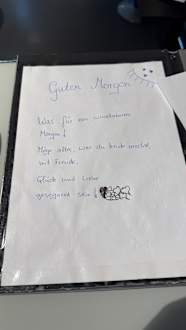 Guten Morgen
Was für ein wunderbarer
Morgen!
Möge alles, was du heute machst,
mit Freude,
Glück und Liebe
gesegnet sein!